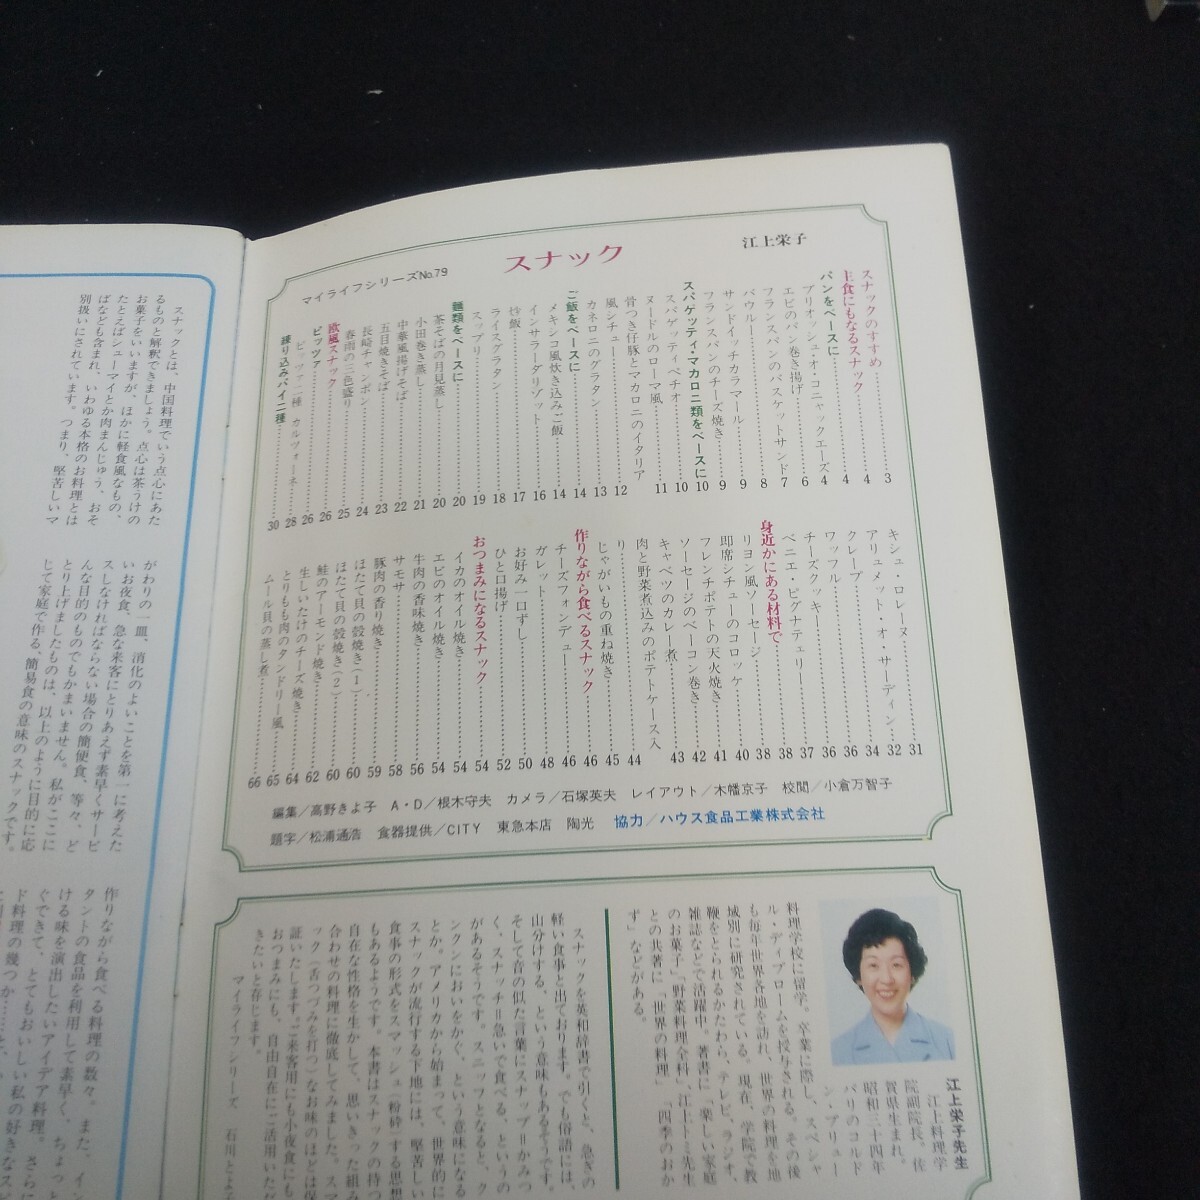 江上栄子
スナック
マイライフシリーズNo.79
スナックのすすめ……3
主食にもなるスナック……4
パンをベースに……4
ブリオッシュ・オ・コニャックエーズ……4
エビのパン巻き揚げ……6
フランスパンのバスケットサンド……7
パウルー……8
サンドイッチカラマール……9
フランスパンのチーズ焼き……9
スパゲッティ・マカロニ類をベースに……10
スパゲッティペチオ……10
ヌードルのローマ風……11
骨つき仔豚とマカロニのイタリア
風シチュー……12
カネロニのグラタン……13
ご飯をベースに……14
メキシコ風炊き込みご飯……14
インサラーダリゾット……16
炒飯……17
ライスグラタン……18
スップリ……19
麺類をベースに……20
茶そばの月見蒸し……20
小田巻き蒸し……21
中華風揚げそば……22
五目焼きそば……23
長崎チャンポン……24
春雨の三色盛り……25
欧風スナック……26
ピッツァ……26
ピッツァ二種 カルツォーネ……28
練り込みパイ二種……30
キシュ・ロレーヌ……31
アリュメット・オ・サーディン……32
クレープ……34
ワッフル……36
チーズクッキー……36
ベニエ・ピグナテェリー……37
身近かにある材料で……38
リヨン風ソーセージ……38
即席シチューのコロッケ……40
フレンチポテトの天火焼き……41
ソーセージのベーコン巻き……42
キャベツのカレー煮……43
肉と野菜煮込みのポテトケース入
り……44
じゃがいもの重ね焼き……45
作りながら食べるスナック……46
チーズフォンデュー……46
ガレット……48
お好み一口ずし……50
ひと口揚げ……52
おつまみになるスナック……54
イカのオイル焼き……54
エビのオイル焼き……54
牛肉の香味焼き……56
サモサ……58
豚肉の香り焼き……59
ほたて貝の殻焼き(1)……60
ほたて貝の殻焼き(2)……60
鮭のアーモンド焼き……62
生しいたけのチーズ焼き……64
とりもも肉のタンドリー風……65
ムール貝の蒸し煮……66
編集／高野きよ子 A・D／根木守夫 カメラ／石塚英夫 レイアウト／木幡京子 校閲／小倉万智子
題字／松浦通浩 食器提供／CITY 東急本店 陶光 協力／ハウス食品工業株式会社
江上栄子先生
江上料理学
院副院長。佐
賀県生まれ。
昭和三十四年
パリのコルド
ン・ブリュー
料理学校に留学。卒業に際し、スペシャ
ル・ディプロームを授与される。その後
も毎年世界各地を訪れ、世界の料理を地
域別に研究されている。現在、学院で教
鞭をとられるかたわら、テレビ、ラジオ、
雑誌などで活躍中。著書に「楽しい家庭
のお菓子」「野菜料理全科」、江上トミ先生
との共著に「世界の料理」「四季のおか
ず」などがある。
スナックを英和辞書で引くと、急ぎの
軽い食事と出ております。でも俗語には、
山分けする、という意味もあるそうです。
そして音の似た言葉にスナップ＝かみつ
く、スナッチ＝急いで食べる、という
があるそうです。スニッフとなると、ク
ンクンにおいをかぐ、という意味になる
とか。アメリカから始まって、世界的に
スナックが流行する下地には、堅苦しい
食事の形式をスマッシュ(粉砕)する思想
もあるようです。本書はスナックの持つ
自在な性格を生かして、思いきった組み
合わせの料理に徹底してみました。スマ
ック(舌つづみを打つ)なお味のほどは保
証いたします。ご来客用にも小夜食にも
おつまみにも、自由自在にご活用いただ
きたいと存じます。
マイライフシリーズ 石川とよ
スナックとは、中国料理でいう点心にあた
るものと解釈できましょう。点心は茶うけの
お菓子をいいますが、ほかに軽食風なもの、
たとえばシューマイとか肉まんじゅう、おそ
ばなども含まれ、いわゆる本格のお料理とは
別扱いにされています。つまり、堅苦しいマ
がわりの一皿、消化のよいことを第一に考えた
いお夜食、急な来客にとりあえず素早くサービ
スしなければならない場合の簡便食、等々、ど
んな目的のものでもかまいません。私がここに
とり上げましたものは、以上のように目的に応
じて家庭で作る、簡易食の意味のスナックです。
作りながら食べる料理の数々。また、イン
タントの食品を利用して素早く、ちょっと
ける味を演出したいアイデア料理。さらに
ぐできて、とてもおいしい私の好きなス
ド料理の幾つか……